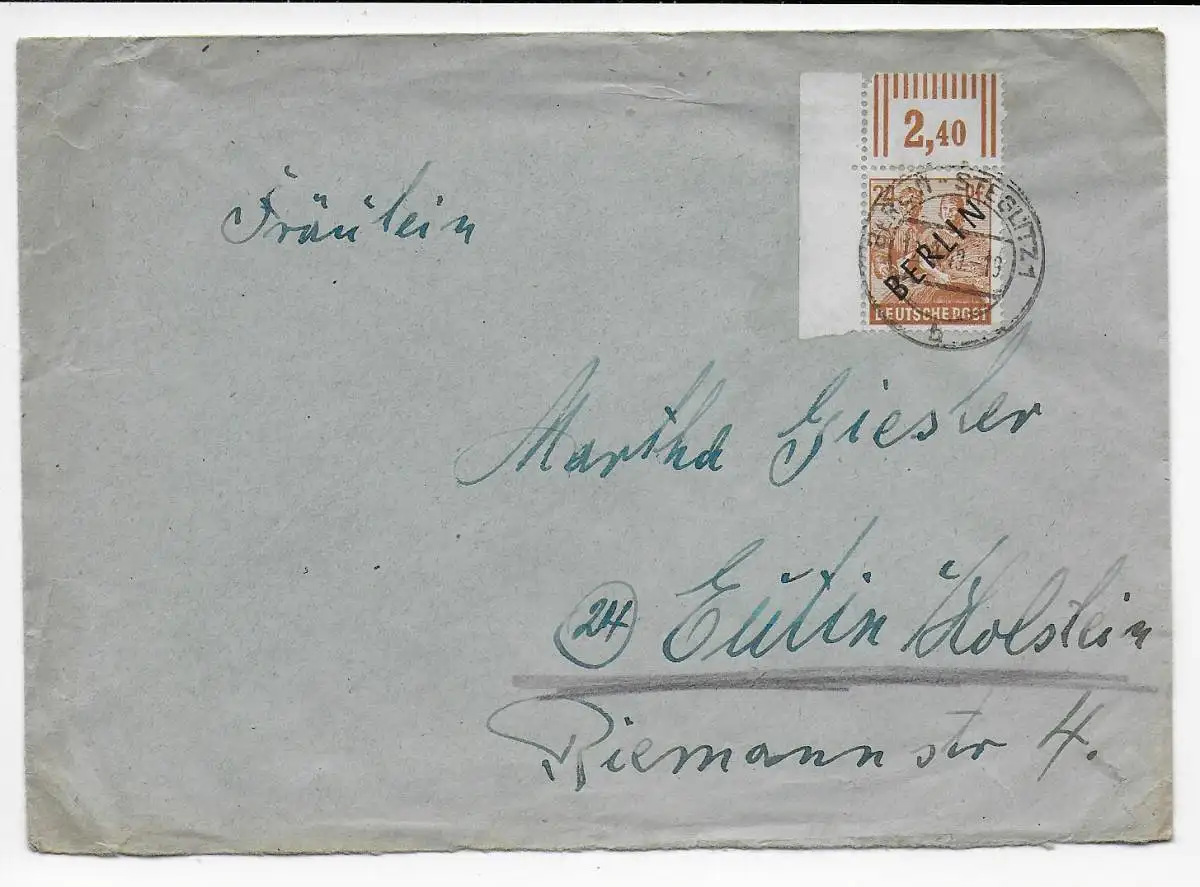 2,40
24
BERLIN
DEUTSCHE POST
BERLIN - STEGLITZ 1
b
Fräulein
Martha Giesler
24 Eutin Holstein
Riemannstr 4.